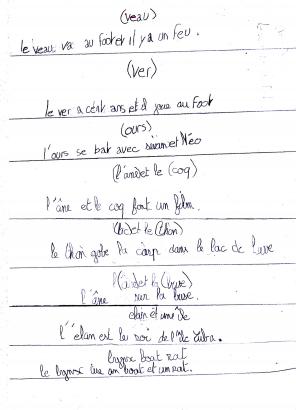 (veau)
le veau va au foot et il y a un feu.
(ver)
le ver a cent ans et il joue au foot
(ours)
l'ours se bat avec et Néo
(l'âne) et le (coq)
l'âne et le coq font un film.
et le (thon)
le thon gobe la carp dans le lac de
l'(â) et la (buse)
l'âne sur la buse.
élan et une île
l'élan est le roi de l'île
boat rat
le tue un boat et un rat.